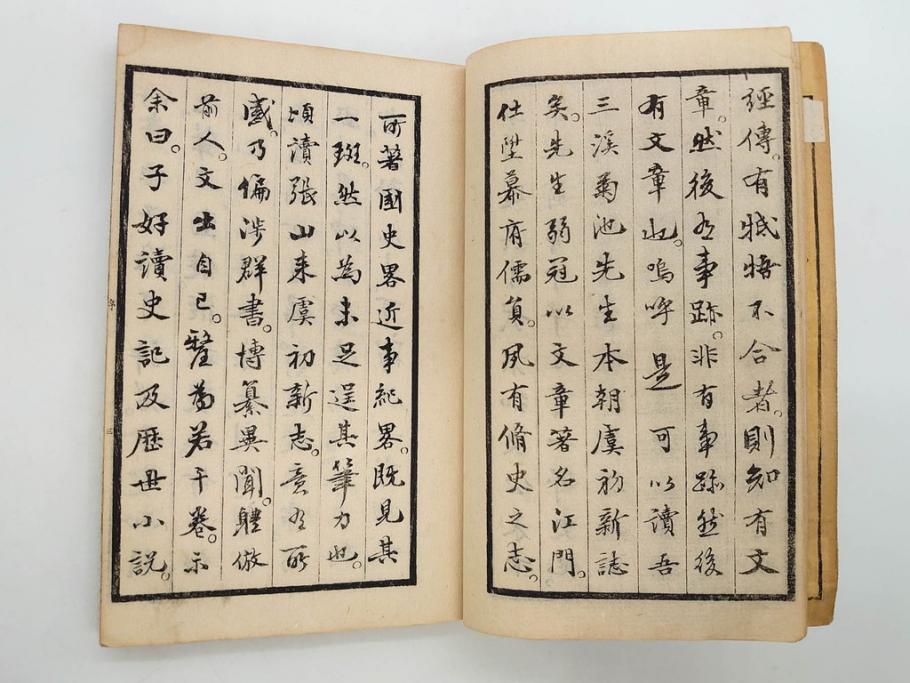 經傳。有牴牾不合者。則知有文
章。然後有事跡。非有事跡然後
有文章也。嗚呼是可以讀吾
三溪菊池先生本朝虞初新誌
矣。先生弱冠以文章著名江門。
仕墜幕府儒負。夙有脩史之志。
所著國史畧近事紀畧。既見其
一斑。然以為未足逞其筆力也。
頃讀張山来虞初新志。意有所
感。乃偏涉群書。博纂異聞。體倣
前人。文出自己。釐為若干卷。示
余曰。子好讀史記及歷世小説。
序
三